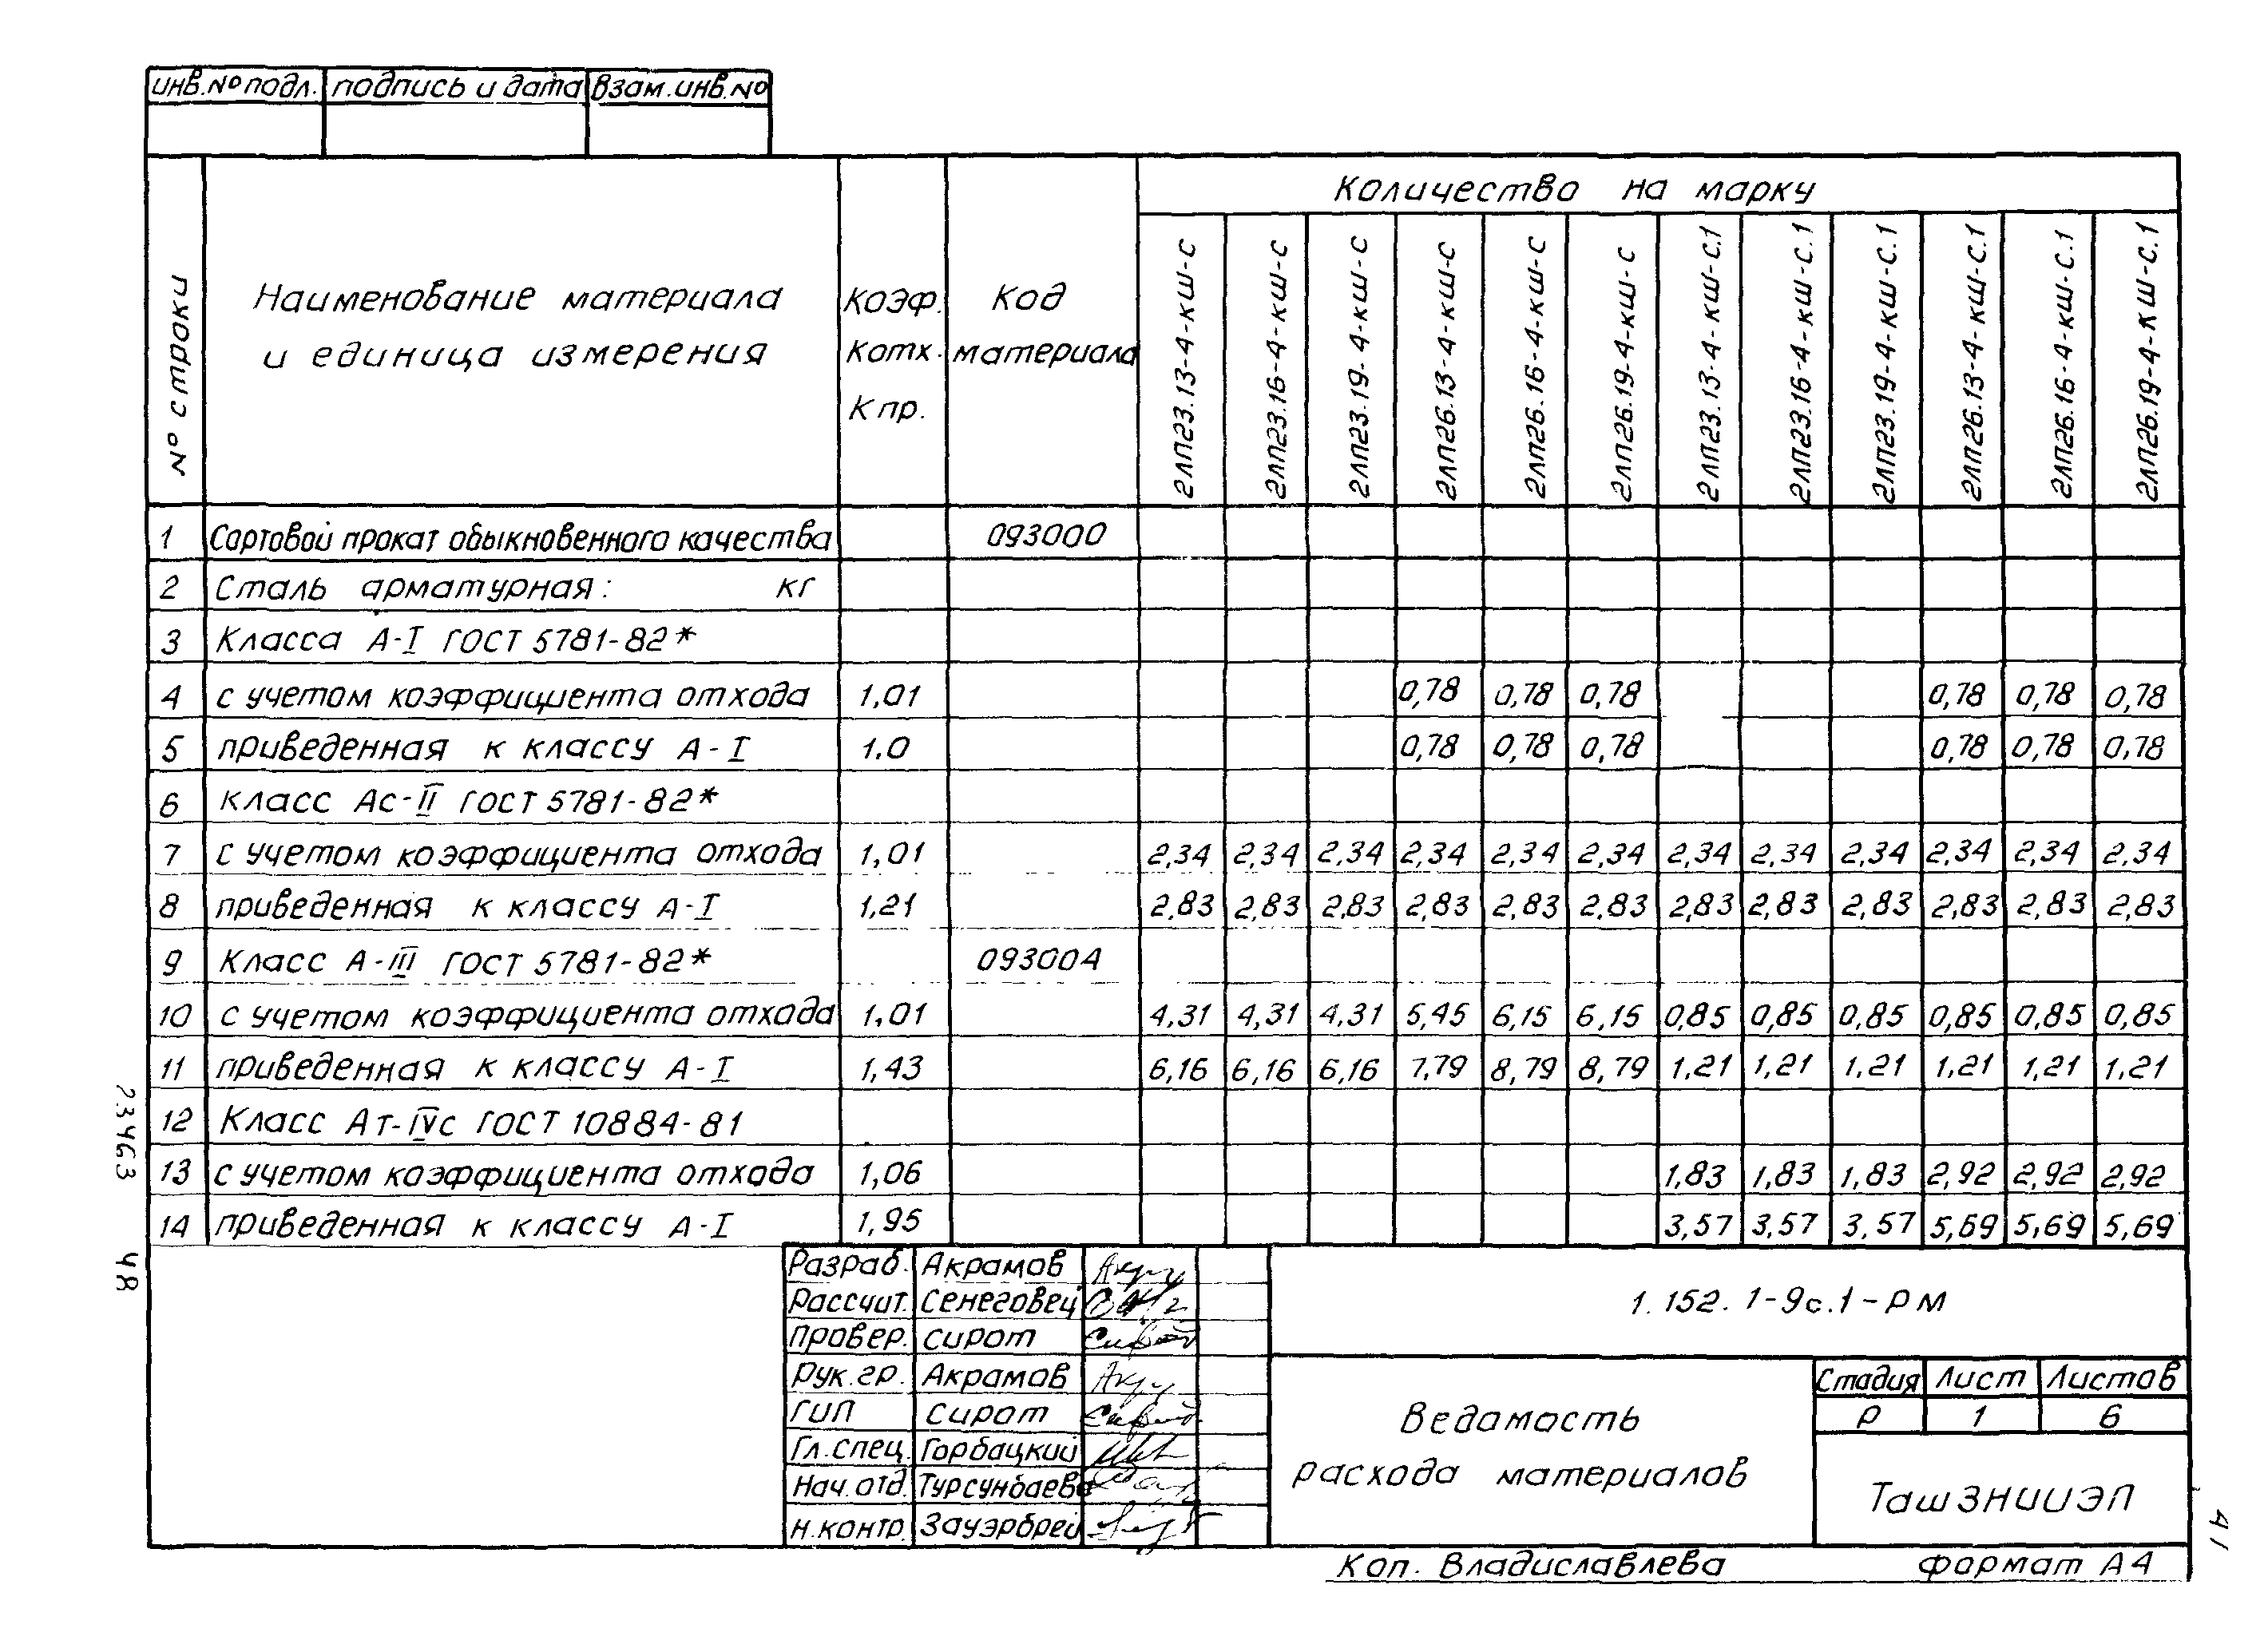 инв. № подл. подпись и дата взам. инв. №
№ строки
Наименование материала
и единица измерения
Коэф.
Котх.
Кпр.
Код
материала
Количество на марку
2ЛП23.13-4-кш-с
2ЛП23.16-4-кш-с
2ЛП23.19-4-кш-с
2ЛП26.13-4-кш-с
2ЛП26.16-4-кш-с
2ЛП26.19-4-кш-с
2ЛП23.13-4-кш-с.1
2ЛП23.16-4-кш-с.1
2ЛП23.19-4-кш-с.1
2ЛП26.13-4-кш-с.1
2ЛП26.16-4-кш-с.1
2ЛП26.19-4-кш-с.1
1 Сортовой прокат обыкновенного качества 093000
2 Сталь арматурная: кг
3 Класса А-I ГОСТ 5781-82*
4 с учетом коэффициента отхода 1,01 0,78 0,78 0,78 0,78 0,78 0,78
5 приведенная к классу А-I 1.0 0,78 0,78 0,78 0,78 0,78 0,78
6 класс Ас-II ГОСТ 5781-82*
7 с учетом коэффициента отхода 1,01 2,34 2,34 2,34 2,34 2,34 2,34 2,34 2,34 2,34 2,34 2,34 2,34
8 приведенная к классу А-I 1,21 2,83 2,83 2,83 2,83 2,83 2,83 2,83 2,83 2,83 2,83 2,83 2,83
9 Класс А-III ГОСТ 5781-82* 093004
10 с учетом коэффициента отхода 1,01 4,31 4,31 4,31 5,45 6,15 6,15 0,85 0,85 0,85 0,85 0,85 0,85
11 приведенная к классу А-I 1,43 6,16 6,16 6,16 7,79 8,79 8,79 1,21 1,21 1,21 1,21 1,21 1,21
12 Класс Ат-IVс ГОСТ 10884-81
13 с учетом коэффициента отхода 1,06 1,83 1,83 1,83 2,92 2,92 2,92
14 приведенная к классу А-I 1,95 3,57 3,57 3,57 5,69 5,69 5,69
23463 48
Разраб. Акрамов
Рассчит. Сенеговец
Провер. Сирот
Рук.гр. Акрамов
ГИП Сирот
Гл.спец. Горбацкий
Нач.отд. Турсунбаева
Н.контр. Зауэрбрей
1.152.1-9с.1-рм
Ведомость
расхода материалов
Стадия Лист Листов
Р 1 6
ТашЗНИИЭП
41
Коп. Владиславлева формат А4